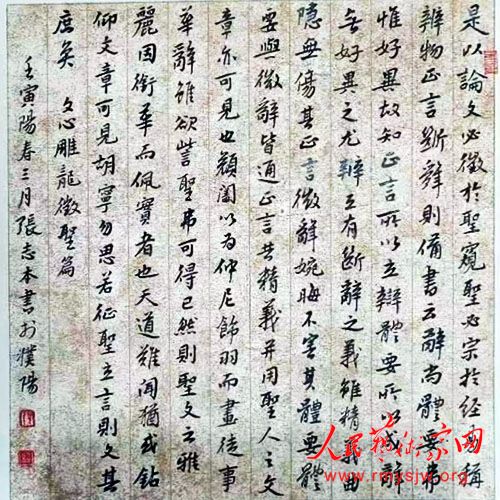 是以論文必徵於聖窺聖必宗於经易稱
辨物正言斷辭則備書云辭尚體要弗
惟好異故知正言所以立辯體要所以成辭
無好異之尤辯立有斷辭之義雖精義曲
隱無傷其正言微辭婉晦不害其體要體
要與微辭皆通正言共精義并用聖人之文
章亦可見也顏闔以为仲尼飾羽而畫徒事
華辭雖欲訾聖弗可得已然則聖文之雅
麗固銜華而佩實者也天道難聞猶或鑽
仰文章可見胡寧勿思若征聖立言則文其
庶矣 文心雕龍徵聖篇
壬寅陽春三月張志本書於濮陽
人民藝術家网
www.rmysjw.com